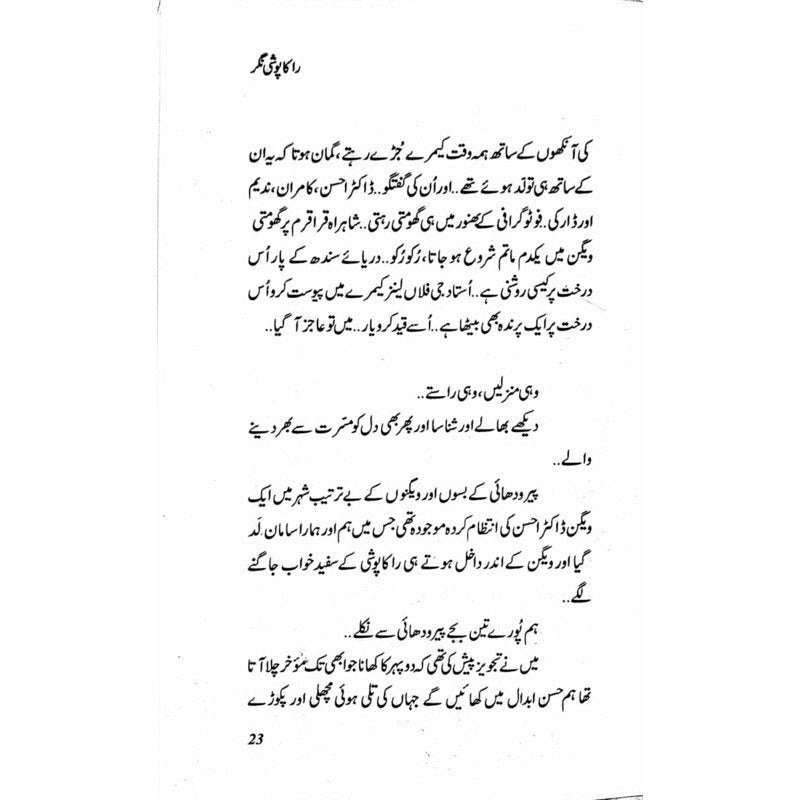 راکاپوشی نگر
کی آنکھوں کے ساتھ ہمہ وقت کیمرے جُڑے رہتے، گمان ہوتا کہ یہ ان
کے ساتھ ہی تولّد ہوئے تھے.. اور اُن کی گفتگو.. ڈاکٹر احسن، کامران، ندیم
اور ڈار کی.. فوٹوگرافی کے بھنور میں ہی گھومتی رہتی.. شاہراہ قراقرم پر گھومتی
ویگن میں یکدم ماتم شروع ہو جاتا، رُکو رُکو.. دریائے سندھ کے پار اُس
درخت پر کیسی روشنی ہے.. اُستاد جی فلاں لینز کیمرے میں پیوست کرو اُس
درخت پر ایک پرندہ بھی بیٹھا ہے.. اُسے قید کرو یار... میں تو عاجز آ گیا..
وہی منزلیں، وہی راستے..
دیکھے بھالے اور شناسا اور پھر بھی دل کو مسّرت سے بھر دینے
والے..
پیرودھائی کے بسوں اور ویگنوں کے بے ترتیب شہر میں ایک
ویگن ڈاکٹر احسن کی انتظام کردہ موجود تھی جس میں ہم اور ہمارا سامان لَد
گیا اور ویگن کے اندر داخل ہوتے ہی راکاپوشی کے سفید خواب جاگنے
لگے..
ہم پُورے تین بجے پیرودھائی سے نکلے..
میں نے تجویز پیش کی تھی کہ دوپہر کا کھانا جو ابھی تک مؤخر چلا آتا
تھا ہم حسن ابدال میں کھائیں گے جہاں کی تلی ہوئی مچھلی اور پکوڑے
23